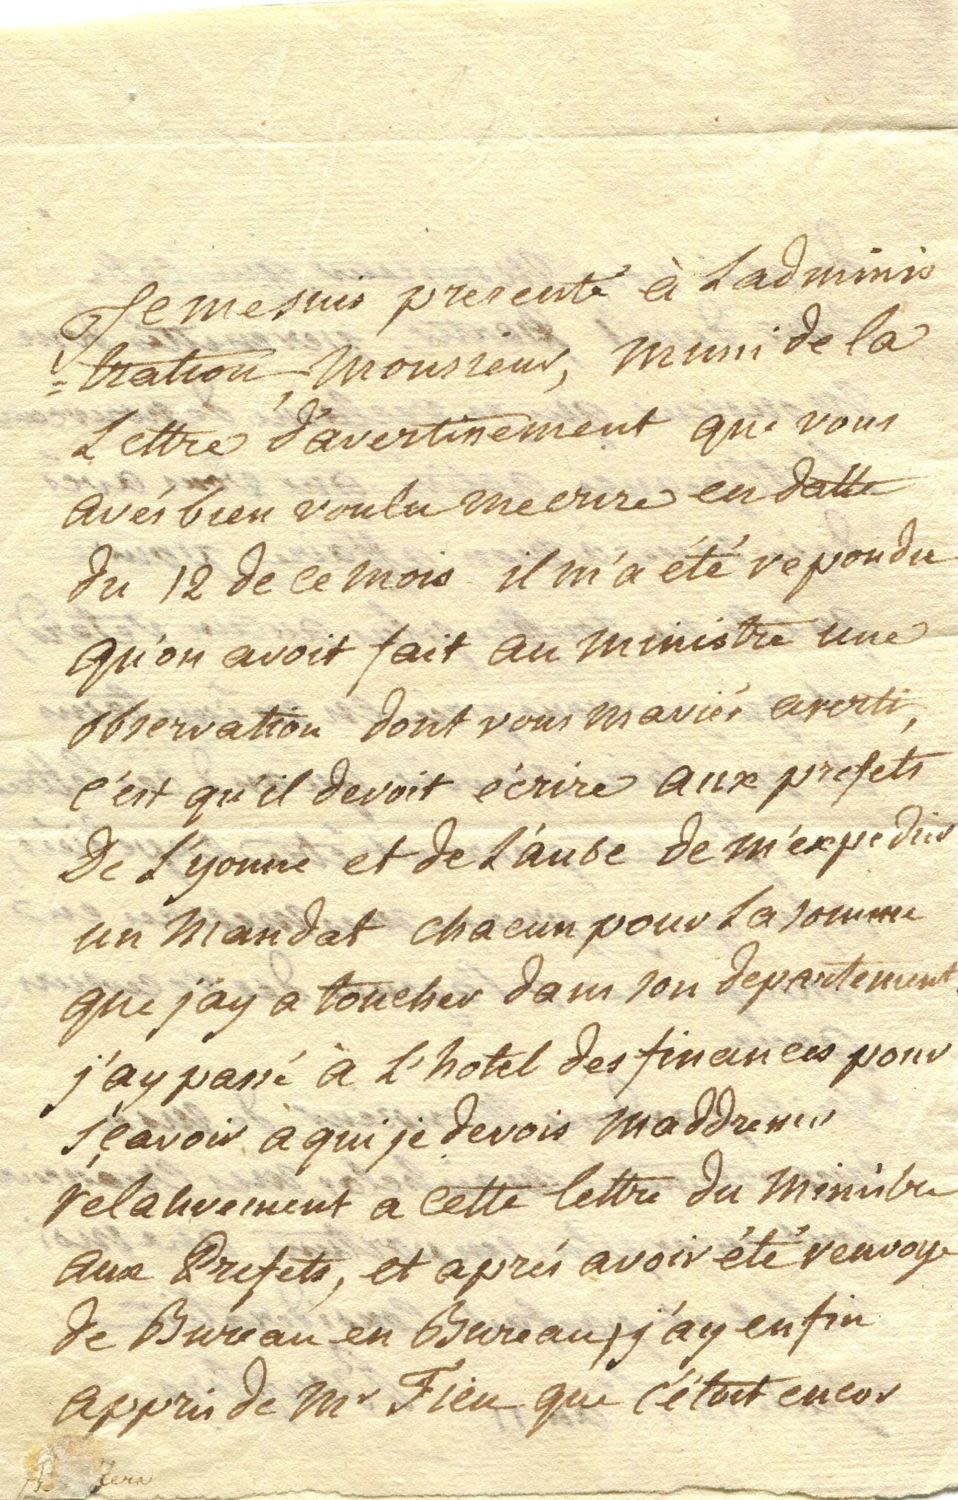 Je me suis presenté à Ladminis
=tration, Monsieur, muni de la
Lettre d'avertissement que vous
avés bien voulu mecrire en datte
du 12 de ce mois il m'a été repondu
qu'on avoit fait au ministre une
observation dont vous maviés averti,
c'est qu'il devoit écrire aux prefets
De L'yonne et de L'aube de m'expedier
un Mandat chacun pour La somme
que j'ay a toucher dans son departement.
j'ay passé à L'hotel des finances pour
sçavoir à qui je devois maddresser
relativement a cette lettre du Ministre
aux Prefets, et aprés avoir été renvoyé
de Bureau en Bureau, j'ay enfin
appris de Mr Fieu que c'étoit encor